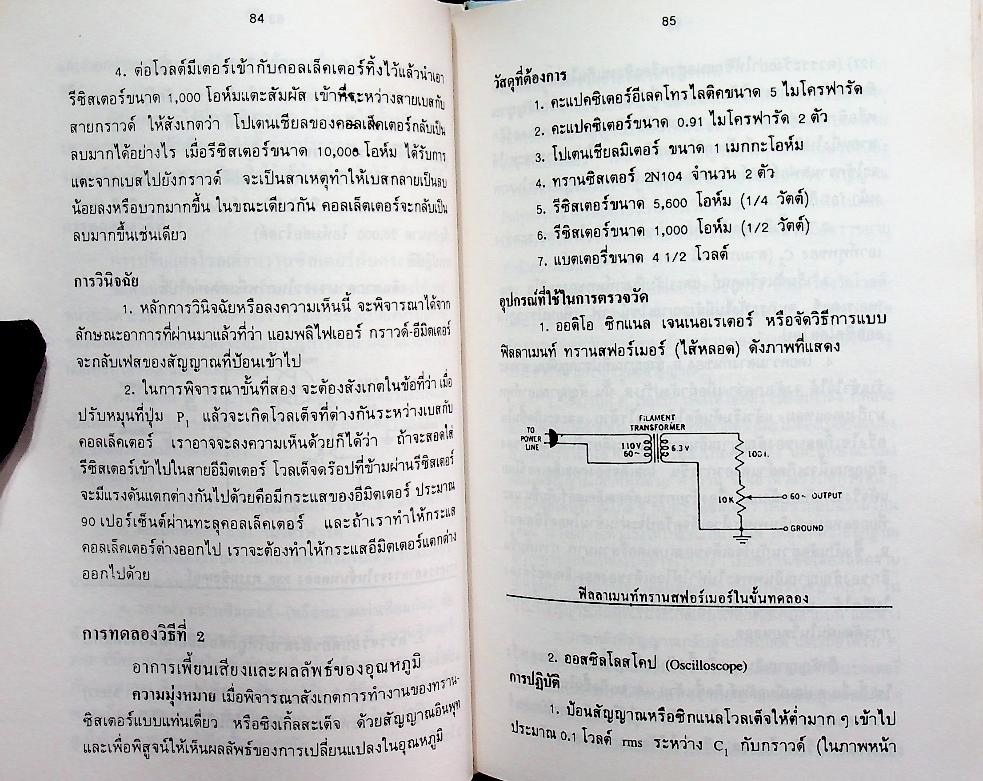 84
4. ต่อโวลต์มีเตอร์เข้ากับคอลเล็คเตอร์ทิ้งไว้แล้วนำเอา
รีซิสเตอร์ขนาด 1,000 โอห์มแตะสัมผัส เข้าที่ระหว่างสายเบสกับ
สายกราวด์ ให้สังเกตว่า โปเตนเชียลของคอลเล็คเตอร์กลับเป็น
ลบมากได้อย่างไร เมื่อรีซิสเตอร์ขนาด 10,000 โอห์ม ได้รับการ
แตะจากเบสไปยังกราวด์ จะเป็นสาเหตุทำให้เบสกลายเป็นลบ
น้อยลงหรือบวกมากขึ้น ในขณะเดียวกัน คอลเล็ตเตอร์จะกลับเป็น
ลบมากขึ้นเช่นเดียว
การวินิจฉัย
1. หลักการวินิจฉัยหรือลงความเห็นนี้ จะพิจารณาได้จาก
ลักษณะอาการที่ผ่านมาแล้วที่ว่า แอมพลิไฟเออร์ กราวด์-อีมิตเตอร์
จะกลับเฟสของสัญญาณที่ป้อนเข้าไป
2. ในการพิจารณาขั้นที่สอง จะต้องสังเกตในข้อที่ว่า เมื่อ
ปรับหมุนที่ปุ่ม P₁ แล้วจะเกิดโวลเต็จที่ต่างกันระหว่างเบสกับ
คอลเล็คเตอร์ เราอาจจะลงความเห็นด้วยก็ได้ว่า ถ้าจะสอดใส่
รีซิสเตอร์เข้าไปในสายอีมิตเตอร์ โวลเต็จดร๊อปที่ข้ามผ่านรีซิสเตอร์
จะมีแรงดันแตกต่างกันไปด้วยคือมีกระแสของอีมิตเตอร์ ประมาณ
90 เปอร์เซ็นต์ผ่านทะลุคอลเล็คเตอร์ และถ้าเราทำให้กระแส
คอลเล็คเตอร์ต่างออกไป เราจะต้องทำให้กระแสอีมิตเตอร์แตกต่าง
ออกไปด้วย
การทดลองวิธีที่ 2
อาการเพี้ยนเสียงและผลลัพธ์ของอุณหภูมิ
ความมุ่งหมาย เมื่อพิจารณาสังเกตการทำงานของทราน-
ซิสเตอร์แบบแท่นเดี่ยว หรือซิงเกิ้ลสะเต็จ ด้วยสัญญาณอินพุท
และเพื่อพิสูจน์ให้เห็นผลลัพธ์ของการเปลี่ยนแปลงในอุณหภูมิ
85
วัสดุที่ต้องการ
1. คะแปคซิเตอร์อีเลคโทรไลติคขนาด 5 ไมโครฟารัด
2. คะแปคซิเตอร์ขนาด 0.91 ไมโครฟารัด 2 ตัว
3. โปเตนเชียลมิเตอร์ ขนาด 1 เมกกะโอห์ม
4. ทรานซิสเตอร์ 2N104 จำนวน 2 ตัว
5. รีซิสเตอร์ขนาด 5,600 โอห์ม (1/4 วัตต์)
6. รีซิสเตอร์ขนาด 1,000 โอห์ม (1/2 วัตต์)
7. แบตเตอรี่ขนาด 4 1/2 โวลต์
อุปกรณ์ที่ใช้ในการตรวจวัด
1. ออดิโอ ซิกแนล เจนเนอเรเตอร์ หรือจัดวิธีการแบบ
ฟิลลาเมนท์ ทรานสฟอร์เมอร์ (ไส้หลอด) ดังภาพที่แสดง
FILAMENT
TRANSFORMER
TO
POWER
LINE
110V
60~
6.3V
10K
60~ OUTPUT
GROUND
ฟิลลาเมนท์ทรานสฟอร์เมอร์ในขั้นทดลอง
2. ออสซิลโลสโคป (Oscilloscope)
การปฏิบัติ
1. ป้อนสัญญาณหรือซิกแนลโวลเต็จให้ต่ำมาก ๆ เข้าไป
ประมาณ 0.1 โวลต์ rms ระหว่าง C₁ กับกราวด์ (ในภาพหน้า